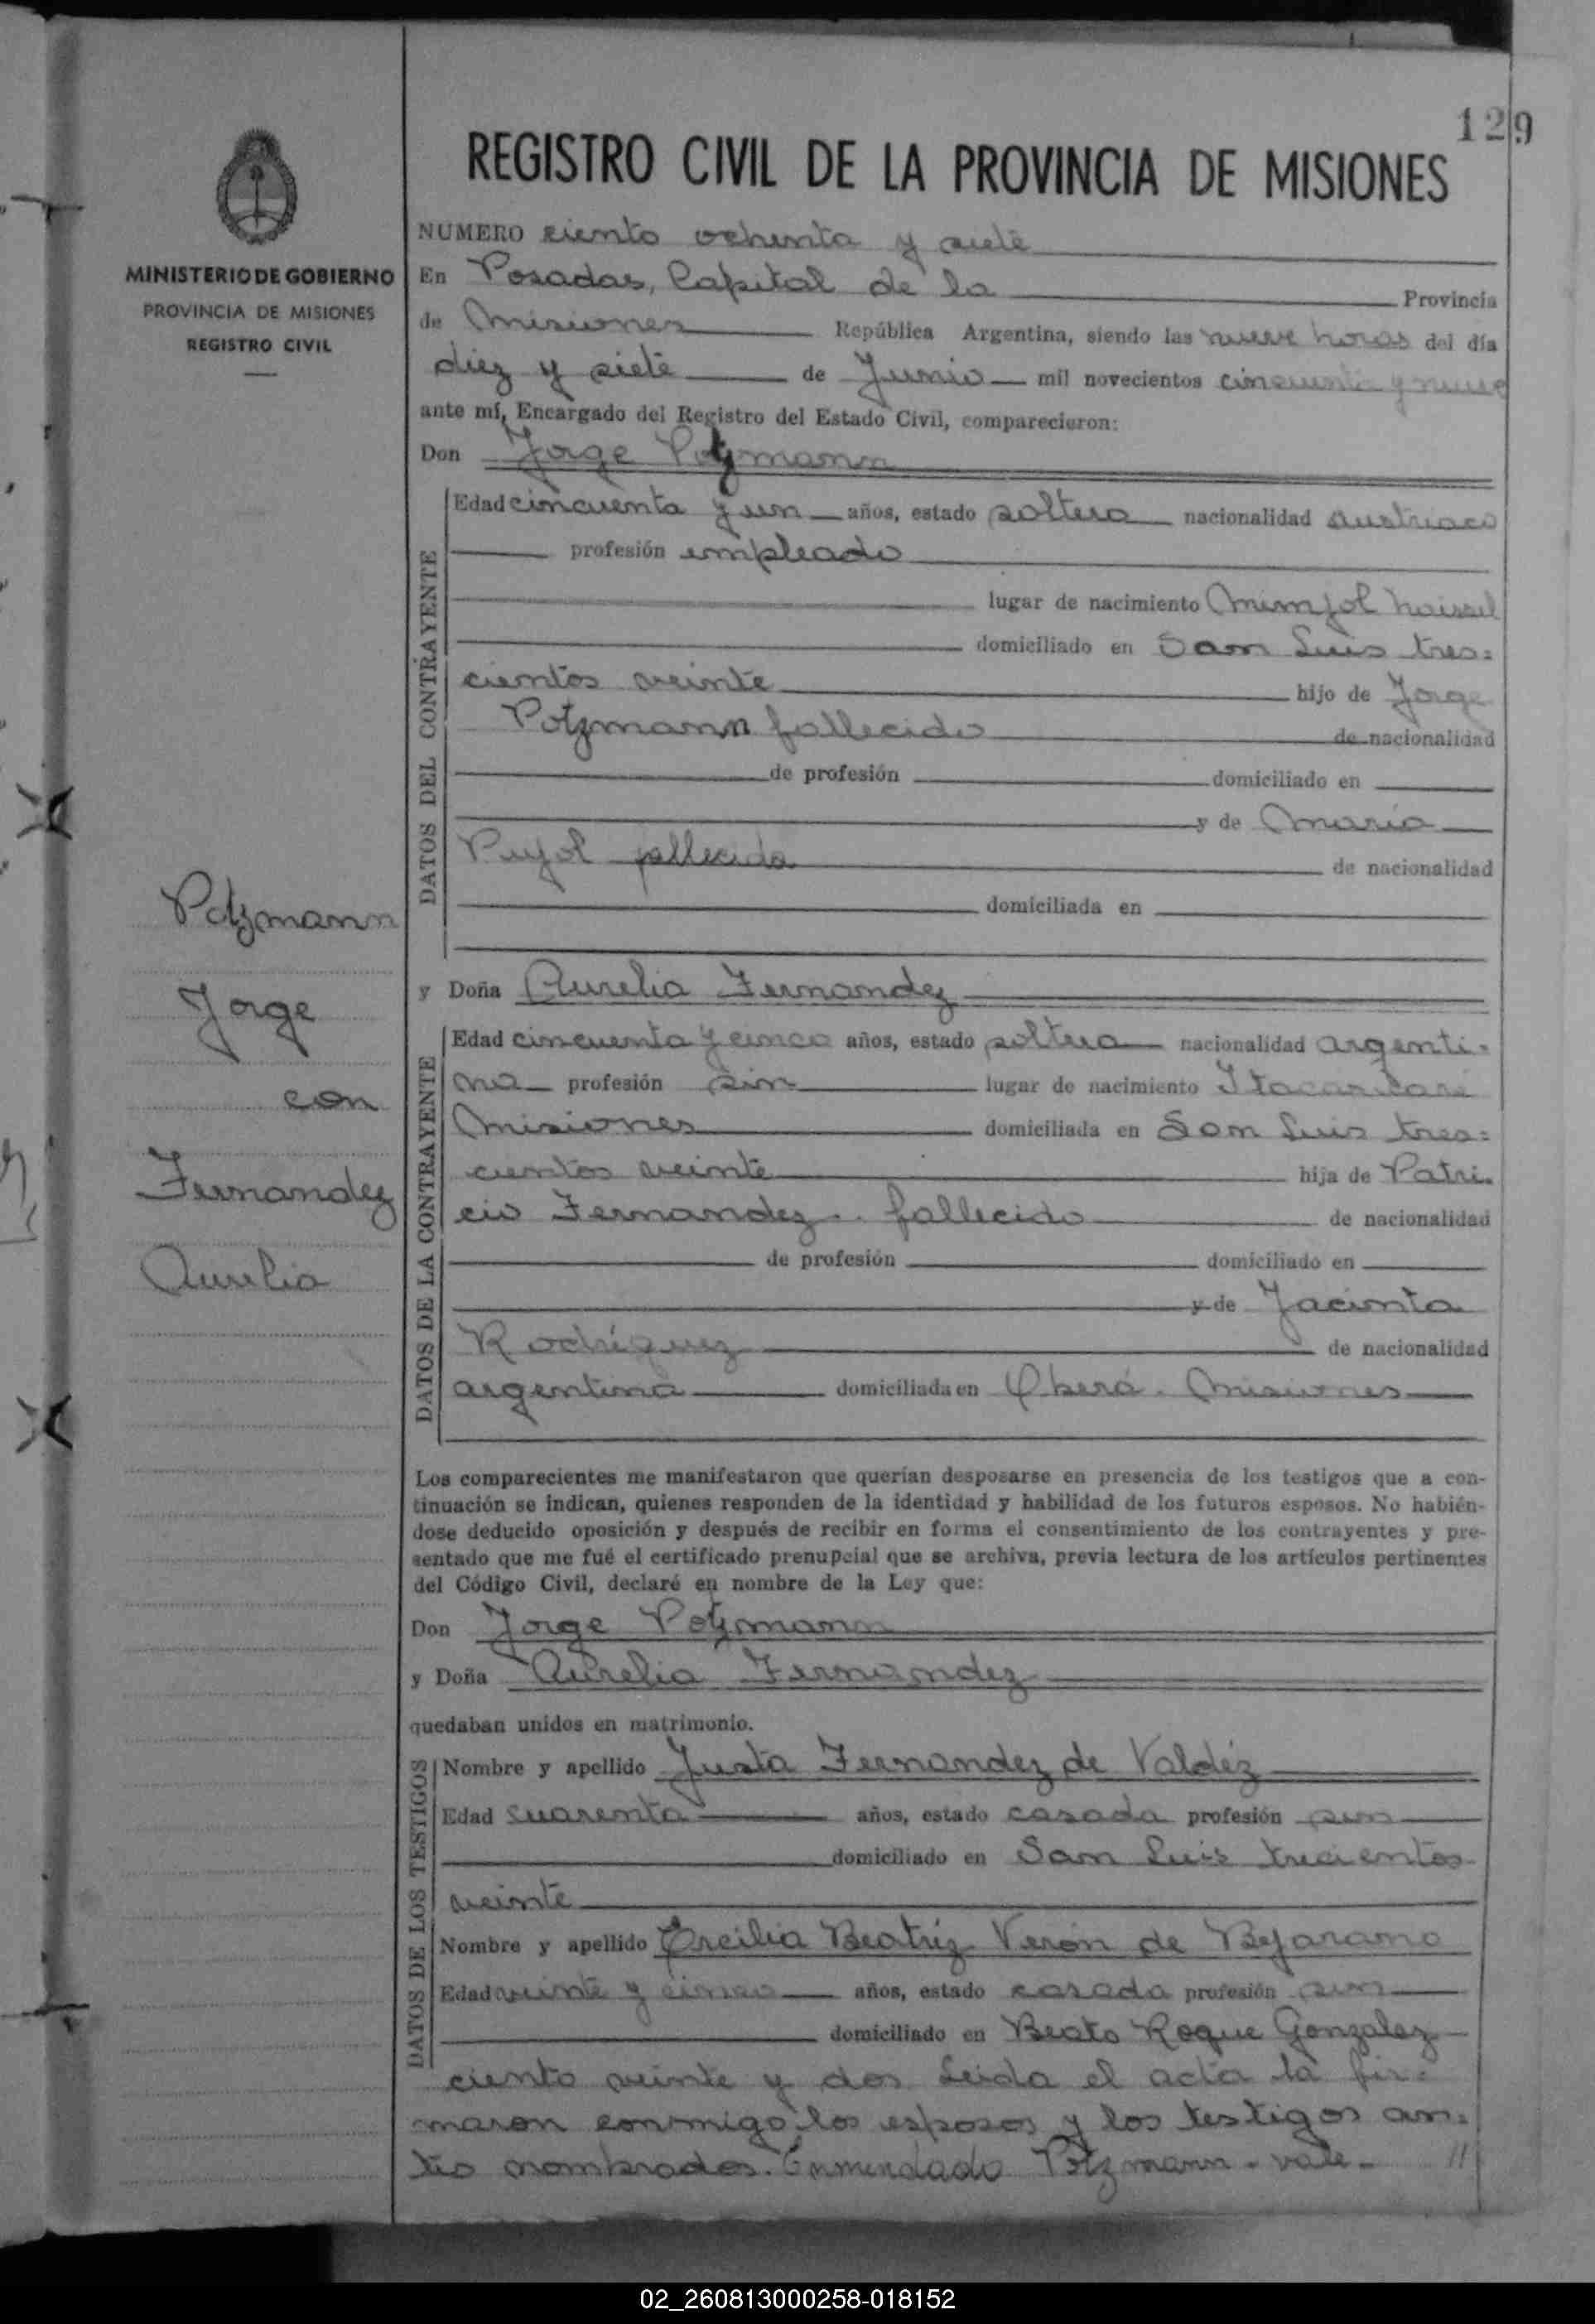 129
REGISTRO CIVIL DE LA PROVINCIA DE MISIONES
MINISTERIO DE GOBIERNO
PROVINCIA DE MISIONES
REGISTRO CIVIL
NUMERO ciento ochenta y siete
En Posadas, Capital de la Provincia
de Misiones República Argentina, siendo las nueve horas del día
diez y siete de Junio mil novecientos cincuenta y nueve
ante mí, Encargado del Registro del Estado Civil, comparecieron:
Don Jorge Potzmann
DATOS DEL CONTRAYENTE
Edad cincuenta y un años, estado soltero nacionalidad austriaco
profesión empleado
lugar de nacimiento
domiciliado en San Luis tres=
cientos veinte hijo de Jorge
Potzmann fallecido de nacionalidad
de profesión domiciliado en
y de María
Pujol fallecida de nacionalidad
domiciliada en
Potzmann
Jorge
con
Fernandez
Aurelia
y Doña Aurelia Fernandez
DATOS DE LA CONTRAYENTE
Edad cincuenta y cinco años, estado soltera nacionalidad argenti=
na profesión sin lugar de nacimiento Itacaruaré
Misiones domiciliada en San Luis tres=
cientos veinte hija de Patri=
cio Fernandez.. fallecido de nacionalidad
de profesión domiciliado en
y de Jacinta
Rodríguez de nacionalidad
argentina domiciliada en Oberá. Misiones
Los comparecientes me manifestaron que querían desposarse en presencia de los testigos que a con-
tinuación se indican, quienes responden de la identidad y habilidad de los futuros esposos. No habién-
dose deducido oposición y después de recibir en forma el consentimiento de los contrayentes y pre-
sentado que me fué el certificado prenupcial que se archiva, previa lectura de los artículos pertinentes
del Código Civil, declaré en nombre de la Ley que:
Don Jorge Potzmann
y Doña Aurelia Fernandez
quedaban unidos en matrimonio.
DATOS DE LOS TESTIGOS
Nombre y apellido Justa Fernandez de Valdéz
Edad cuarenta años, estado casada profesión sin
domiciliado en San Luis trecientos
veinte
Nombre y apellido Ercilia Beatríz Verón de Bejarano
Edad veinte y cinco años, estado casada profesión sin
domiciliado en Beato Roque Gonzalez
ciento veinte y dos Leida el acta la fir=
maron conmigo los esposos y los testigos an=
tes nombrados. Enmendado Potzmann - vale - //
02_260813000258-018152